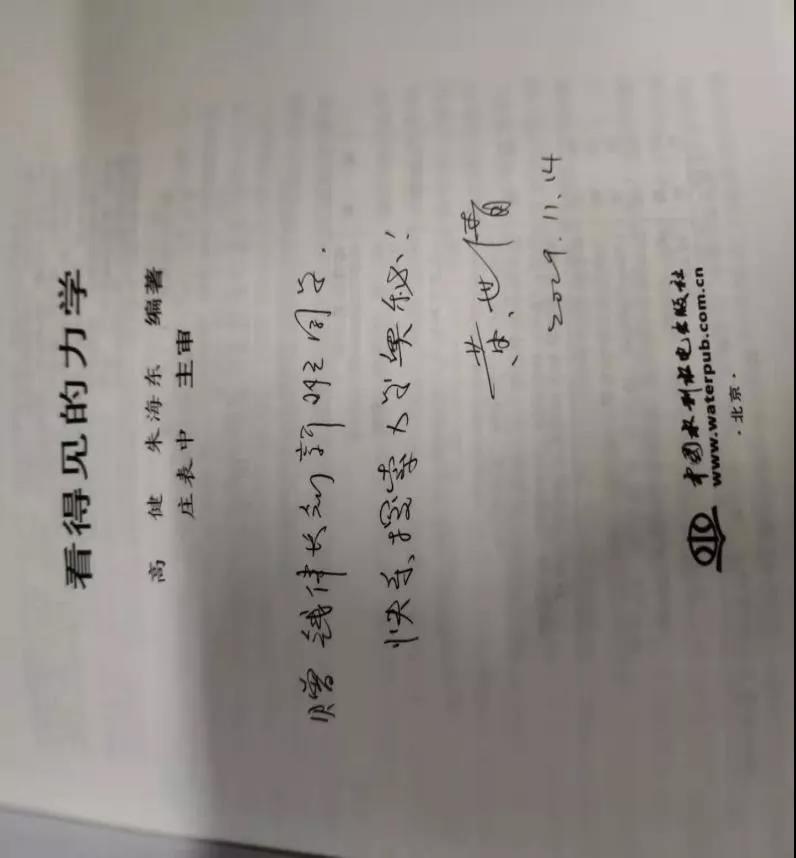 看得见的力学
高健 朱海东 编著
庄表中 主审
赠 钱伟长创新班同学.
快乐、探索力学奥秘!
黄世清
2029.11.14
中国水利水电出版社
www.waterpub.com.cn
·北京·